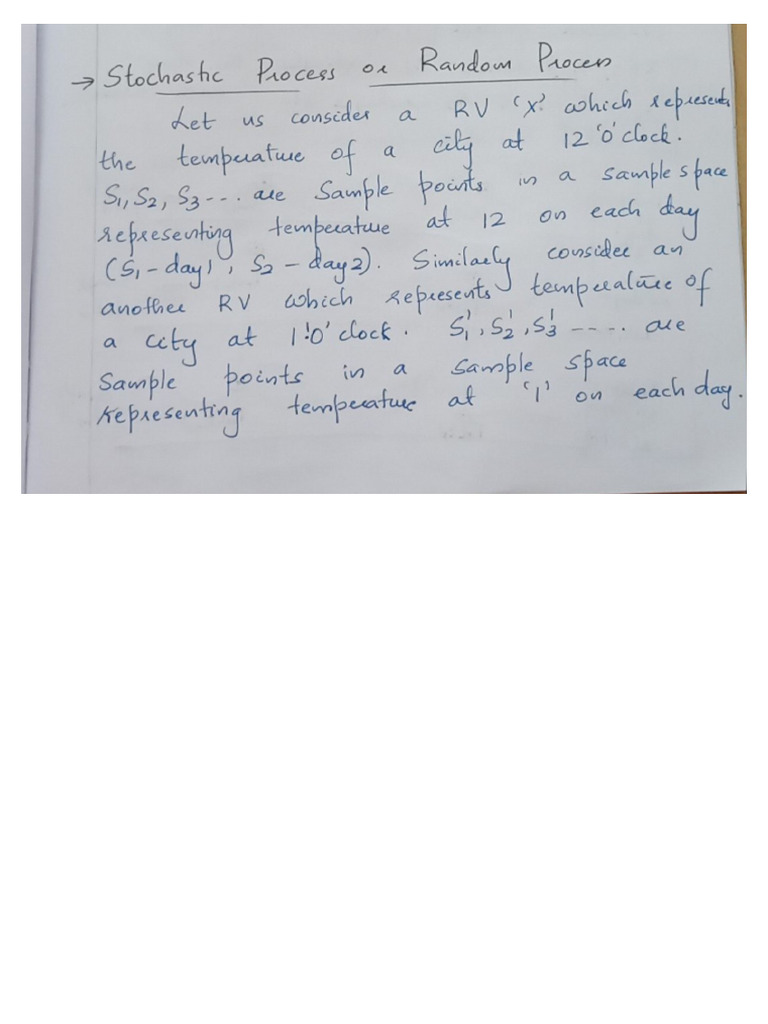 → Stochastic Process or Random Process
Let us consider a RV 'X' which represents
the temperature of a city at 12 'O' clock.
S1, S2, S3 .... are Sample points in a sample space
representing temperature at 12 on each day
(S1 - day1, S2 - day2). Similarly consider an
another RV which represents temperature of
a city at 1 'O' clock. S1', S2', S3' ---.. are
Sample points in a sample space
representing temperature at '1' on each day.